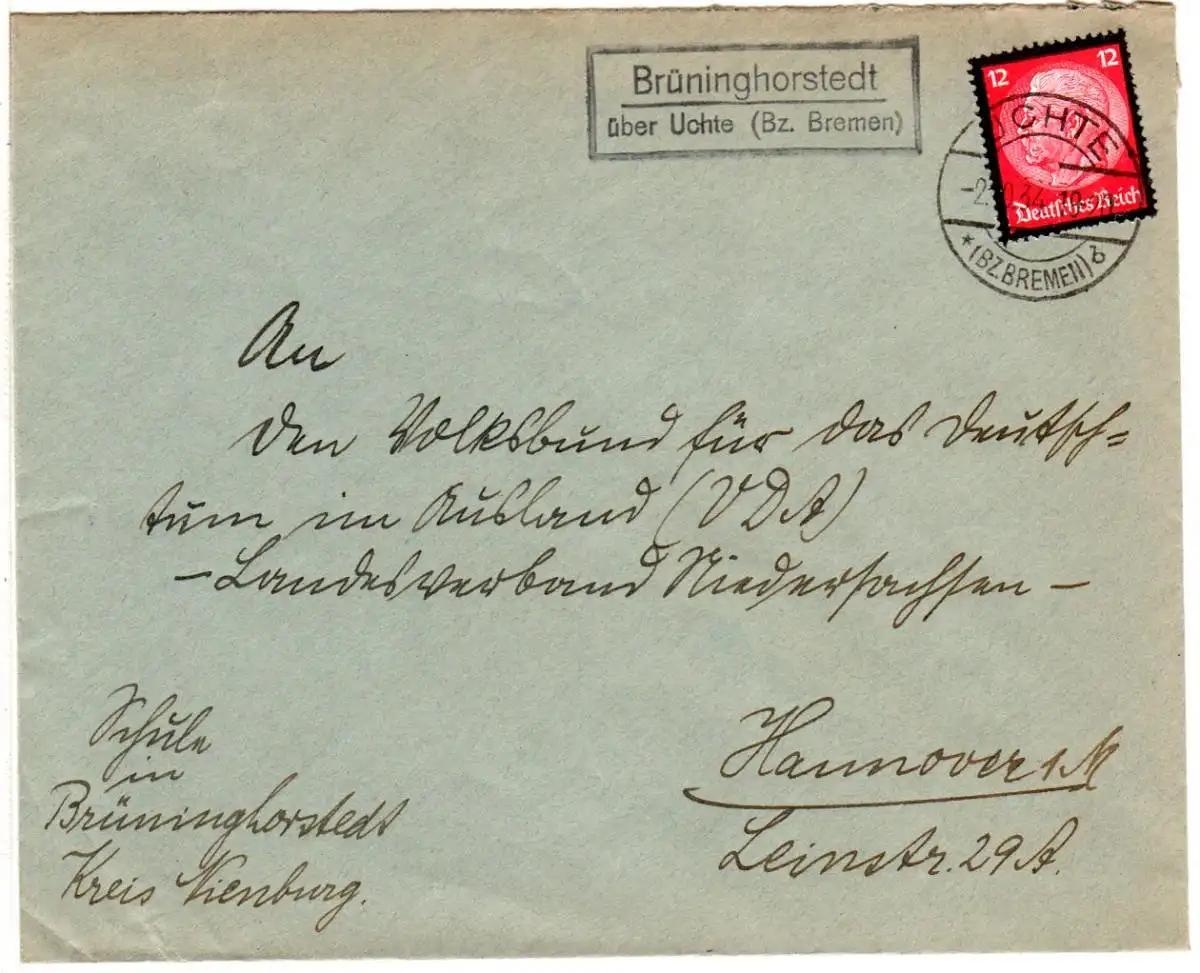 Brüninghorstedt
über Uchte (Bz. Bremen)
12 12
Deutsches Reich
UCHTE
34
* (BZ. BREMEN) b
An
den Volksbund für das Deutsch=
tum im Ausland (VDA)
- Landesverband Niedersachsen -
Hannover 1 M
Leinstr. 29 A.
Schule
in
Brüninghorstedt
Kreis Nienburg.